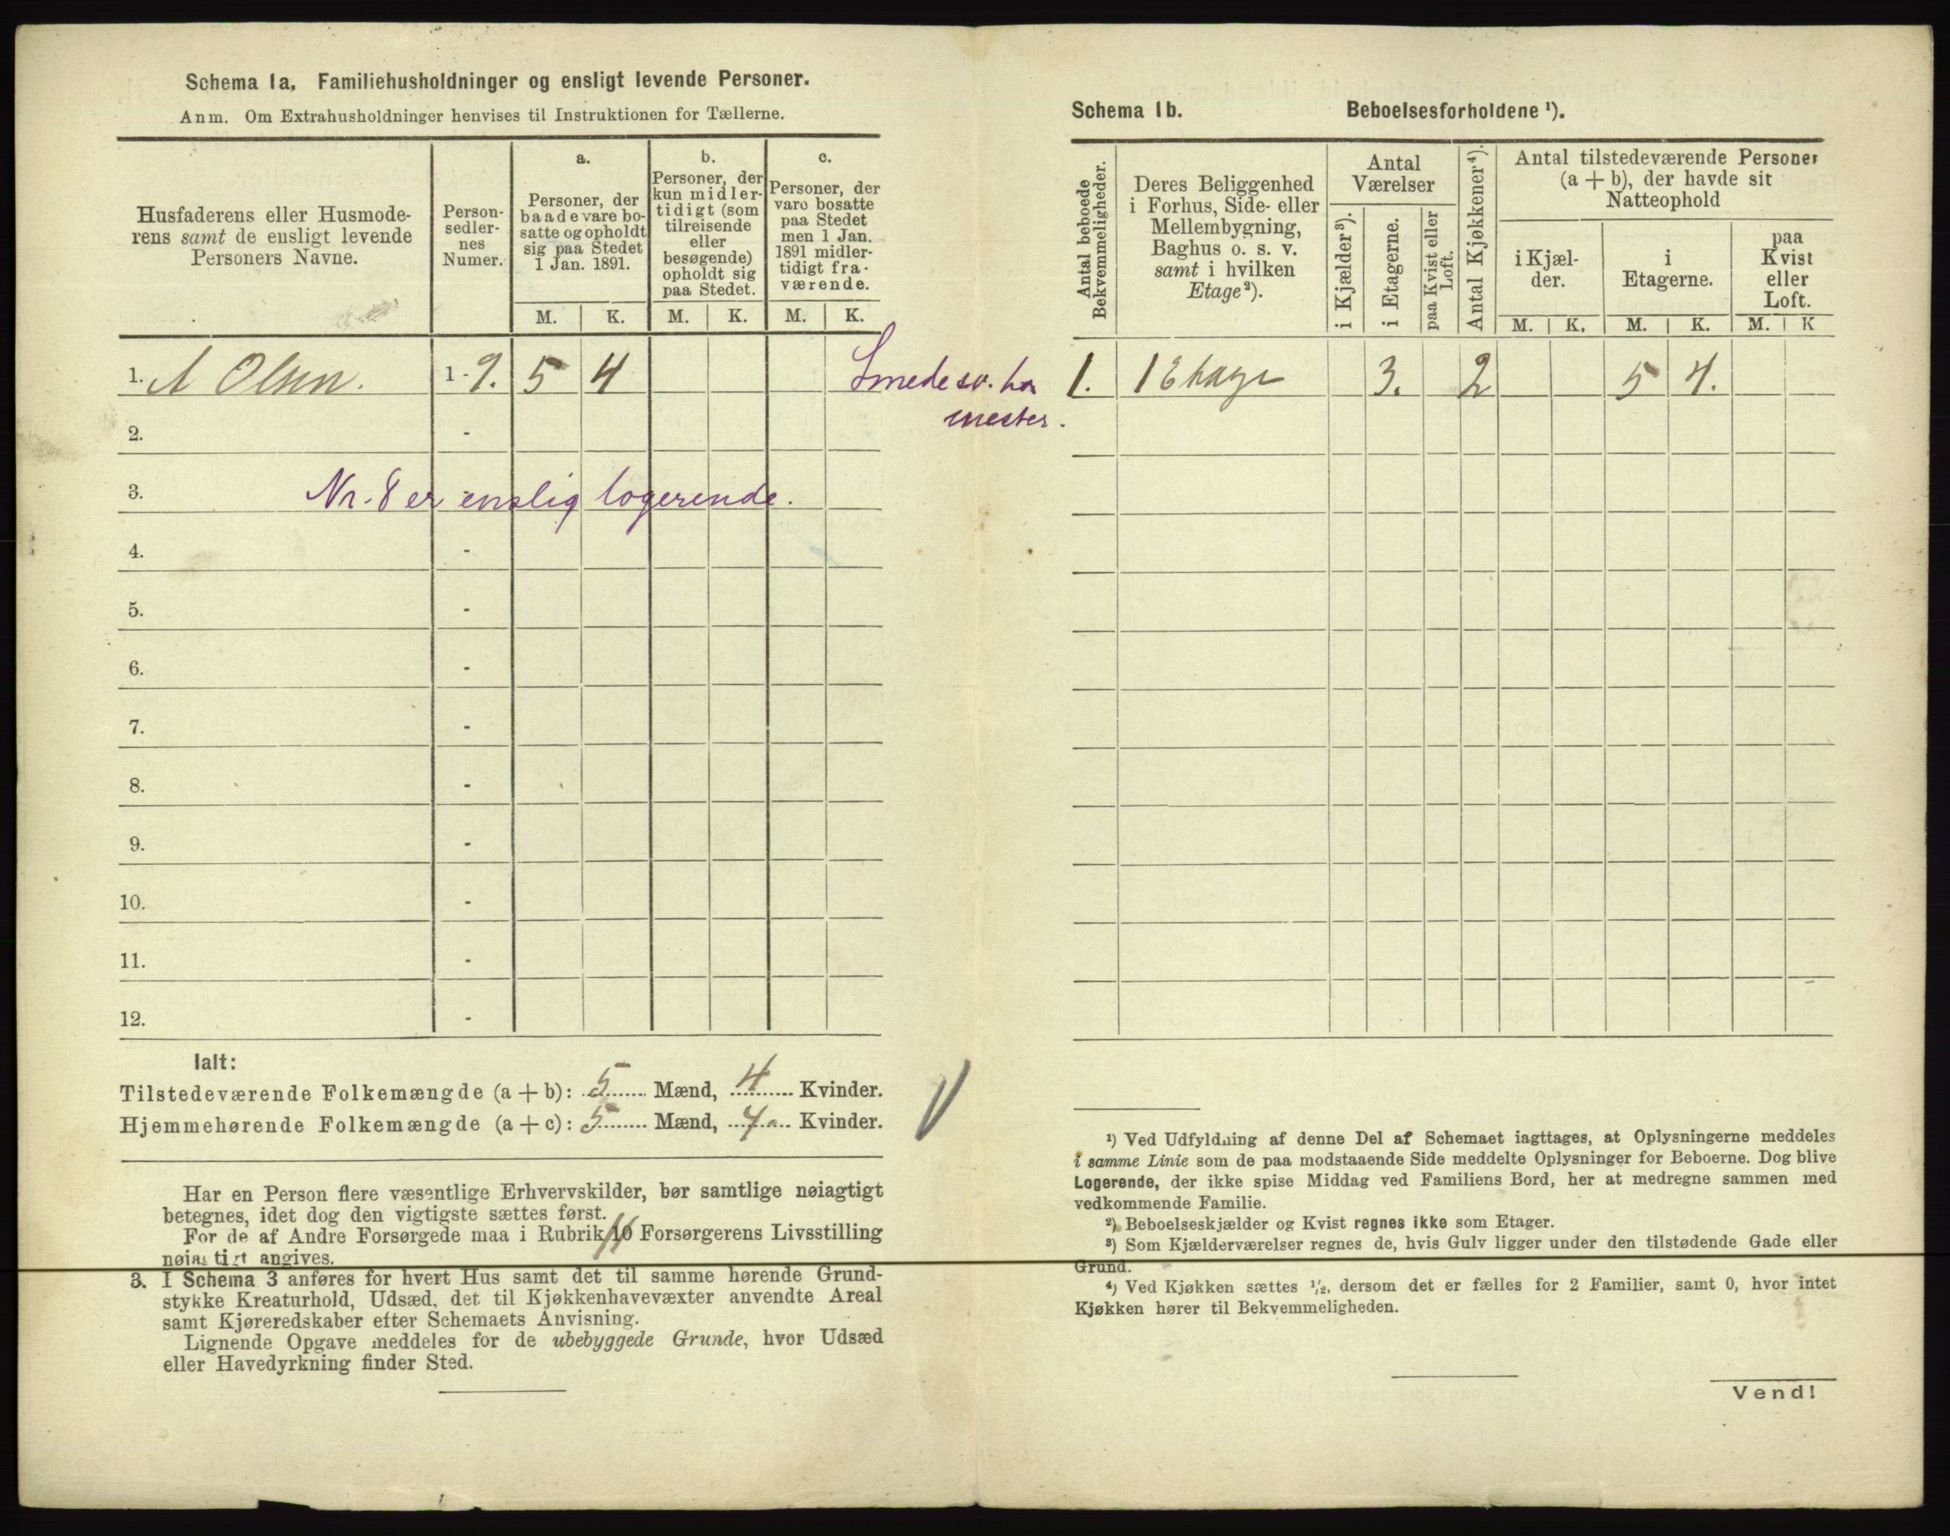 Schema 1a, Familiehusholdninger og ensligt levende Personer.
Anm. Om Extrahusholdninger henvises til Instruktionen for Tællerne.
Husfaderens eller Husmode-
rens samt de ensligt levende
Personers Navne.
Person-
sedler-
nes
Numer.
a.
Personer, der
baade vare bo-
satte og opholdt
sig paa Stedet
1 Jan. 1891.
b.
Personer, der
kun midler-
tidigt (som
tilreisende
eller
besøgende)
opholdt sig
paa Stedet.
c.
Personer, der
vare bosatte
paa Stedet
men 1 Jan.
1891 midler-
tidigt fra-
værende.
M. K. M. K. M. K.
1. A Olsen. 1 - 9. 5 4
Smedesv. ha
mester.
2. -
3. Nr. 8 er enslig logerende.
4. -
5. -
6. -
7. -
8. -
9. -
10. -
11. -
12. -
Ialt:
Tilstedeværende Folkemængde (a + b): 5 Mænd, 4 Kvinder.
Hjemmehørende Folkemængde (a + c): 5 Mænd, 4 Kvinder.
Har en Person flere væsentlige Erhvervskilder, bør samtlige nøiagtigt
betegnes, idet dog den vigtigste sættes først.
For de af Andre Forsørgede maa i Rubrik 10 11 Forsørgerens Livsstilling
nøiagtigt angives.
3. I Schema 3 anføres for hvert Hus samt det til samme hørende Grund-
stykke Kreaturhold, Udsæd, det til Kjøkkenhavevæxter anvendte Areal
samt Kjøreredskaber efter Schemaets Anvisning.
Lignende Opgave meddeles for de ubebyggede Grunde, hvor Udsæd
eller Havedyrkning finder Sted.
Schema 1b. Beboelsesforholdene ¹).
Antal beboede
Bekvemmeligheder.
Deres Beliggenhed
i Forhus, Side- eller
Mellembygning,
Baghus o. s. v.
samt i hvilken
Etage ²).
Antal
Værelser
i Kjælder ³).
i Etagerne.
paa Kvist eller
Loft.
Antal Kjøkkener ⁴).
Antal tilstedeværende Personer
(a + b), der havde sit
Natteophold
i Kjæl-
der.
i
Etagerne.
paa
Kvist
eller
Loft.
M. K. M. K. M. K
1. 1 Etage 3. 2 5 4.
¹) Ved Udfyldning af denne Del af Schemaet iagttages, at Oplysningerne meddeles
i samme Linie som de paa modstaaende Side meddelte Oplysninger for Beboerne. Dog blive
Logerende, der ikke spise Middag ved Familiens Bord, her at medregne sammen med
vedkommende Familie.
²) Beboelseskjælder og Kvist regnes ikke som Etager.
³) Som Kjælderværelser regnes de, hvis Gulv ligger under den tilstødende Gade eller
Grund.
⁴) Ved Kjøkken sættes ½, dersom det er fælles for 2 Familier, samt 0, hvor intet
Kjøkken hører til Bekvemmeligheden.
Vend!